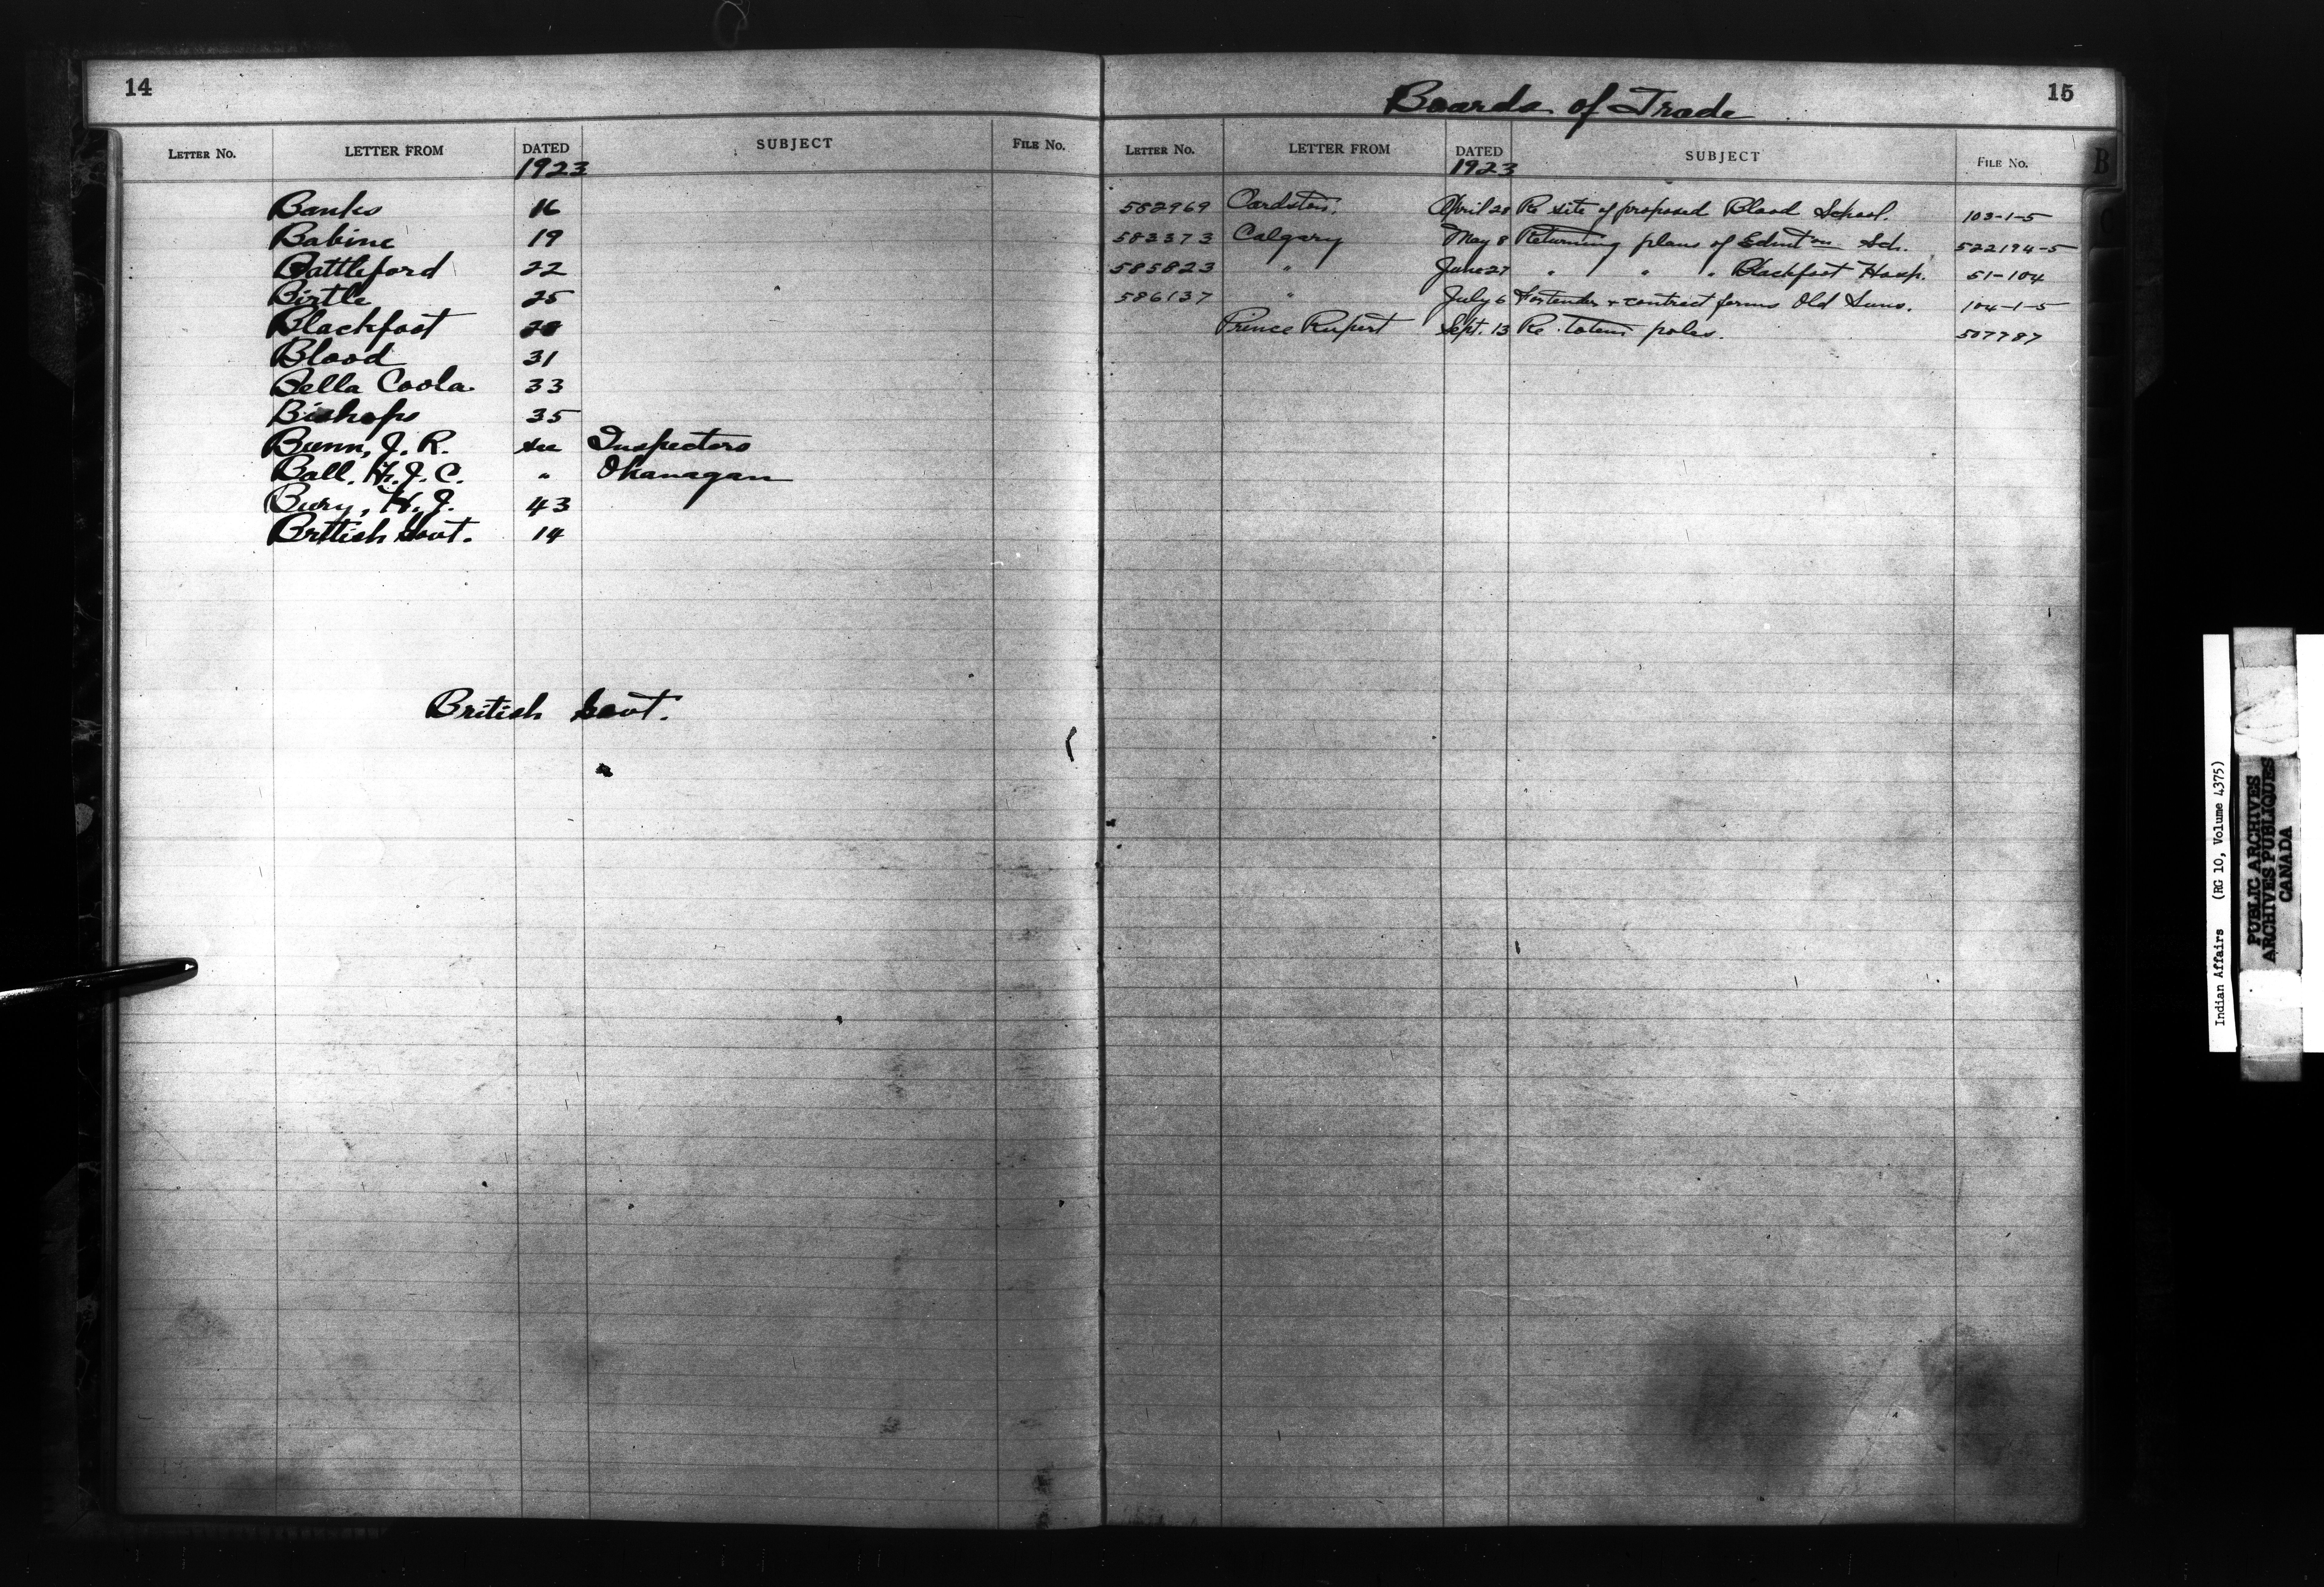 14
LETTER No. LETTER FROM DATED SUBJECT FILE No.
1923
Banks 16
Babine 19
Battleford 22
Birtle 25
Blackfoot 28
Blood 31
Bella Coola 33
Bishops 35
Bunn, J. R. see Inspectors
Ball. H. J. C. " Okanagan
Bury, H. J. 43
British Govt. 14
British Govt.
15
Boards of Trade
LETTER No. LETTER FROM DATED SUBJECT FILE No.
1923
B
582969 Cardston. April 28 Re site of proposed Blood School. 103-1-5
583373 Calgary May 8 Returning plans of Edmton Sch. 522194-5
585823 " June 27 " " " Blackfoot Hosp. 51-104
586137 " July 6 For tender & contract forms Old Suns. 104-1-5
Prince Rupert Sept. 13 Re. totem poles. 507787
Indian Affairs (RG 10, Volume 4375)
PUBLIC ARCHIVES
ARCHIVES PUBLIQUES
CANADA